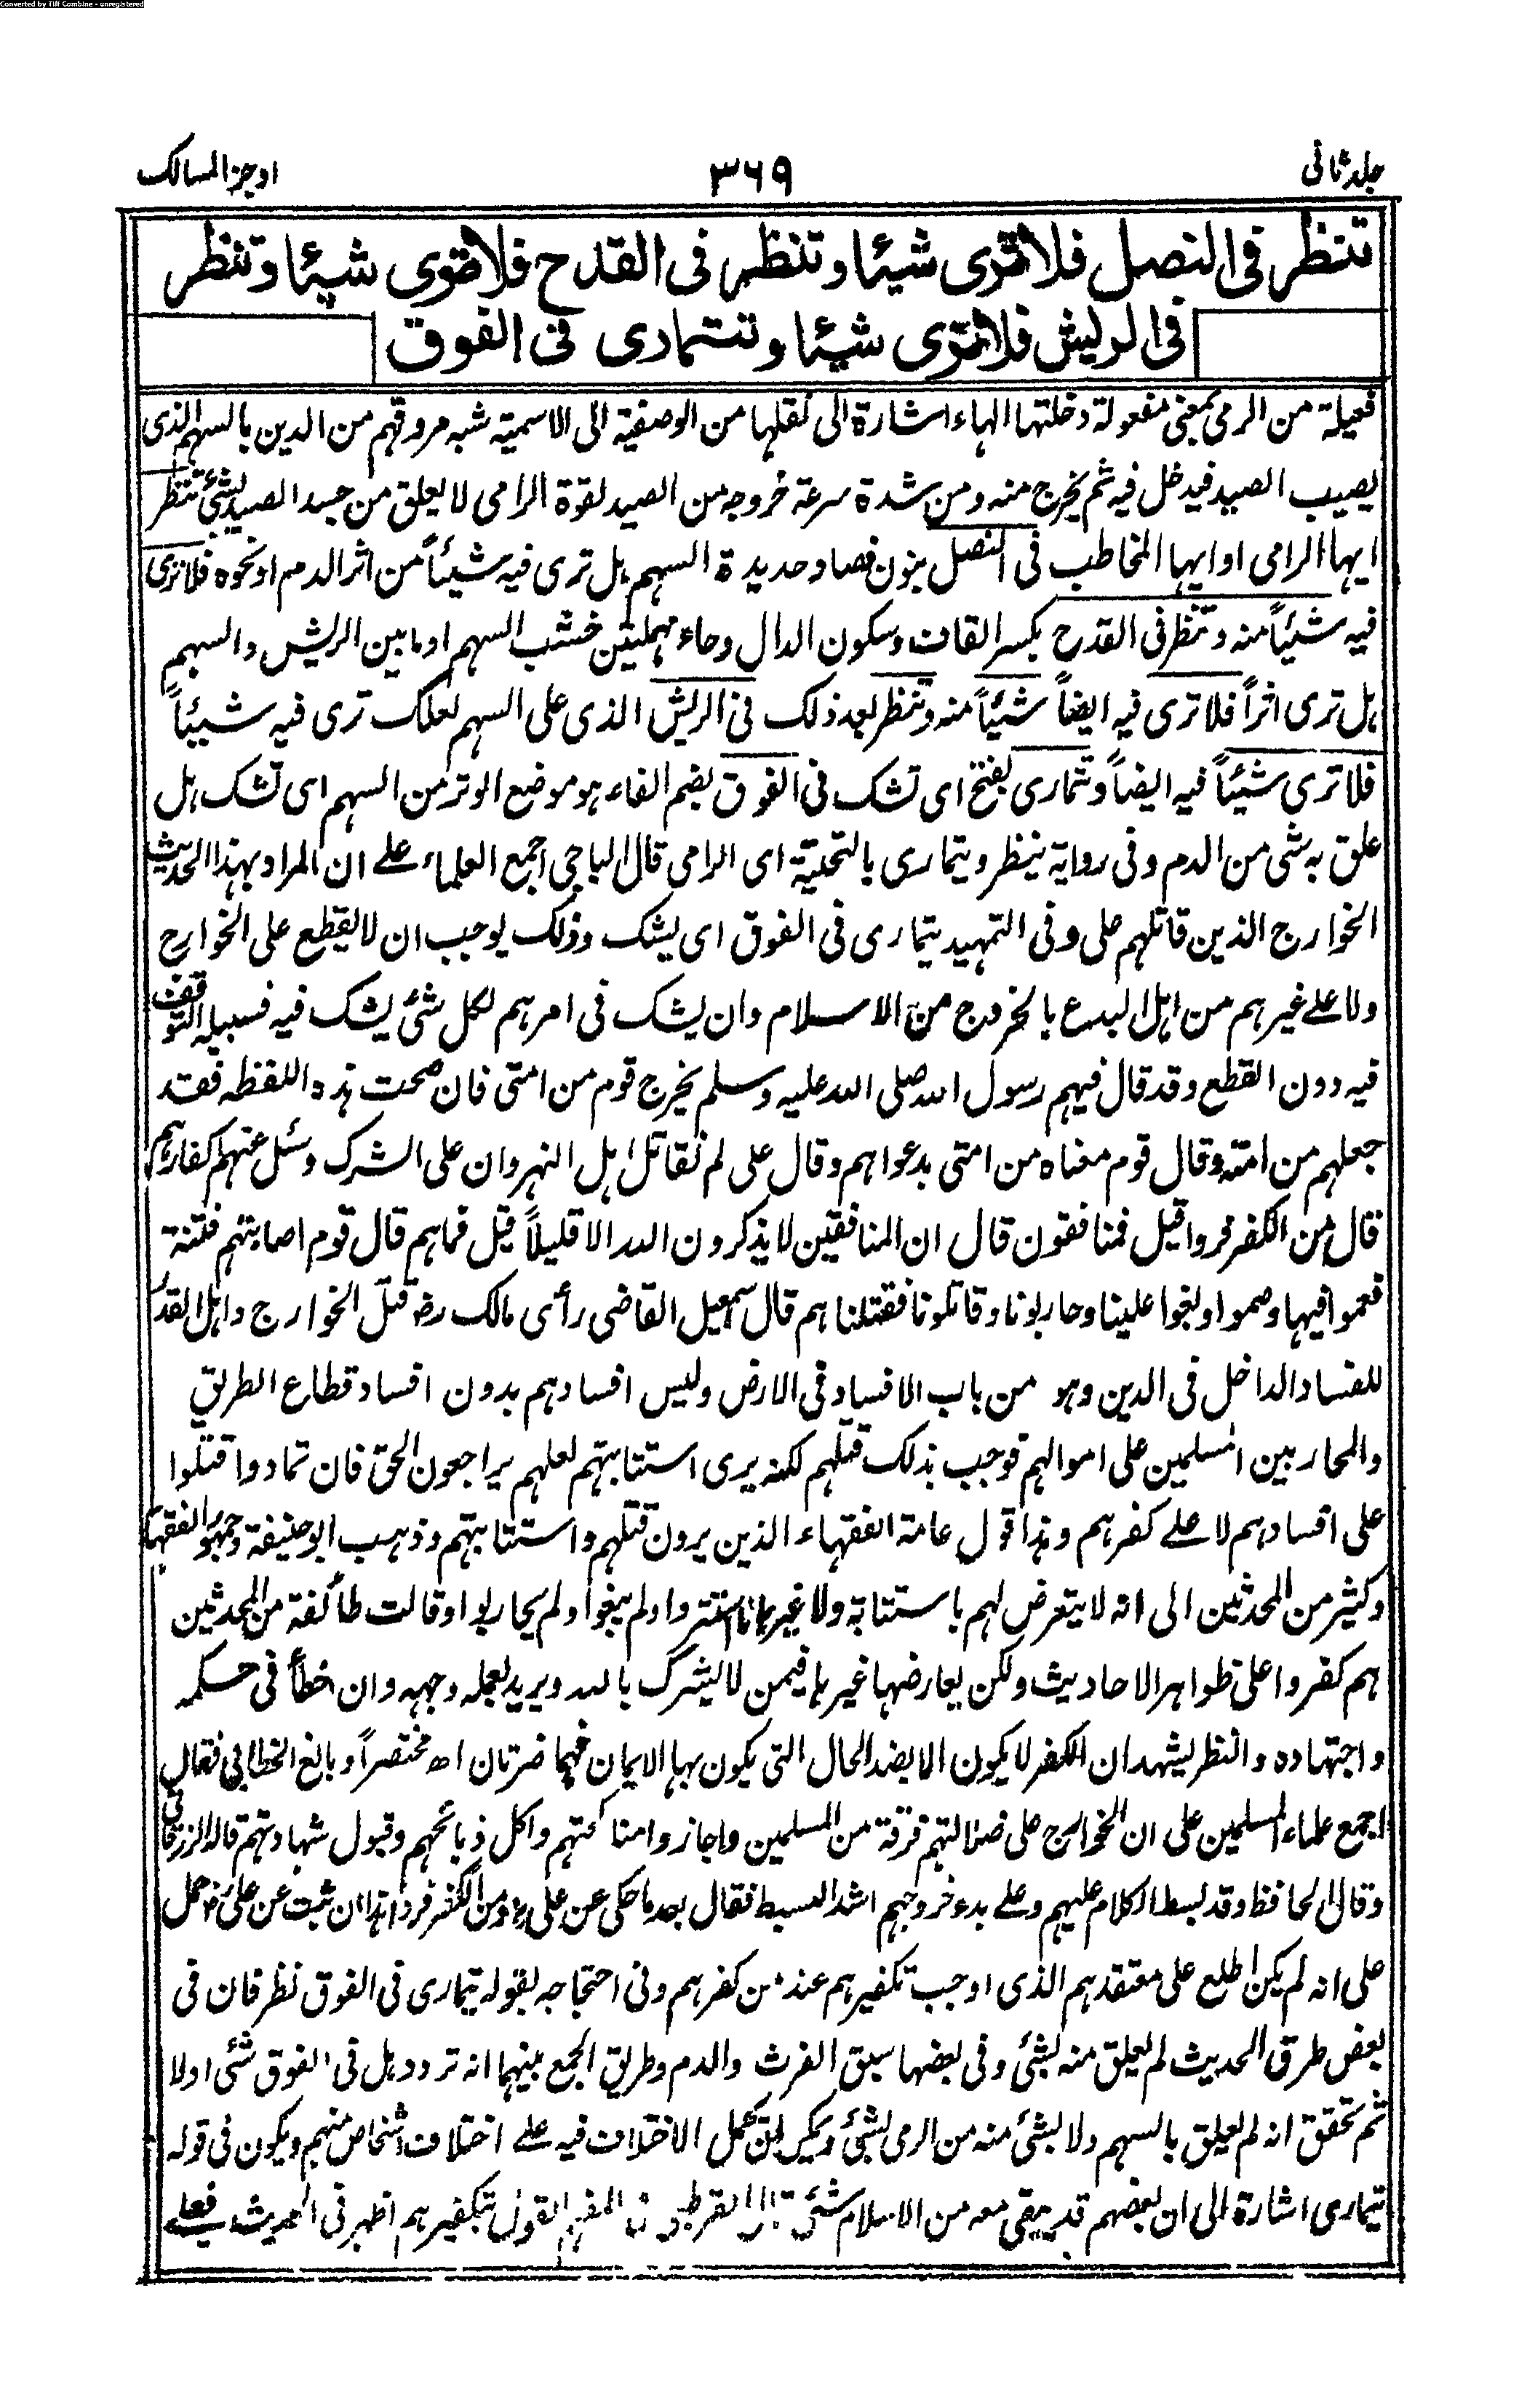 Converted by Tiff Combine - unregistered
جلد ثانی
۳۶۹
اوجز المسالك
تنظر فى النصل فلا ترى شيئا وتنظر فى القدح فلا ترى شيئا وتنظر
فى الريش فلا ترى شيئا وتتمارى فى الفوق
فعيلة من الرمى بمعنى مفعولة دخلتها الهاء اشارة الى نقلها من الوصفية الى الاسمية شبه مروقهم من الدين بالسهم الذى
يصيب الصيد فيدخل فيه ثم يخرج منه ومن شدة سرعة خروجه من الصيد لقوة الرامى لا يعلق من جسد الصيد بشئ تنظر
ايها الرامى او ايها المخاطب فى النصل بنون فصاد حديدة السهم هل ترى فيه شيئاً من اثر الدم او نحوه فلا ترى
فيه شيئاً منه وتنظر فى القدح بكسر القاف وسكون الدال وحاء مهملتين خشب السهم او ما بين الريش والسهم
هل ترى اثراً فلا ترى فيه ايضاً شيئاً منه وتنظر بعد ذلك فى الريش الذى على السهم لعلك ترى فيه شيئاً
فلا ترى شيئاً فيه ايضاً وتتمارى بفتح اى تشك فى الفوق بضم الفاء هو موضع الوتر من السهم اى تشك هل
علق به شى من الدم وفى رواية ينظر ويتمارى بالتحتية اى الرامى قال الباجى اجمع العلماء على ان المراد بهذا الحديث
الخوارج الذين قاتلهم على وفى التمهيد يتمارى فى الفوق اى يشك وذلك يوجب ان لا يقطع على الخوارج
ولا على غيرهم من اهل البدع بالخروج من الاسلام وان يشك فى امرهم لكل شئ يشك فيه فسبيله التوقف
فيه دون القطع وقد قال فيهم رسول الله صلى الله عليه وسلم يخرج قوم من امتى فان صحت هذه اللفظه فقد
جعلهم من امته وقال قوم معناه من امتى بدعواهم وقال على لم نقاتل اهل النهروان على الشرك وسئل عنهم اكفار هم
قال من الكفر فروا قيل فمنافقون قال ان المنافقين لا يذكرون الله الا قليلاً قيل فما هم قال قوم اصابتهم فتنة
فعموا فيها وصموا وبغوا علينا وحاربونا وقاتلونا فقتلناهم قال اسمعيل القاضى رأى مالك رض قتل الخوارج واهل القدر
للفساد الداخل فى الدين وهو من باب الافساد فى الارض وليس افسادهم بدون افساد قطاع الطريق
والمحاربين المسلمين على اموالهم فوجب بذلك قتلهم لكنه يرى استتابتهم لعلهم يراجعون الحق فان تمادوا قتلوا
على افسادهم لا على كفرهم وهذا قول عامة الفقهاء الذين يرون قتلهم واستتابتهم وذهب ابو حنيفة وجمهور الفقهاء
وكثير من المحدثين الى انه لا يتعرض لهم باستتابة ولا غيرها ما استتروا ولم يبغوا ولم يحاربوا وقالت طائفة من المحدثين
هم كفروا على ظواهر الاحاديث ولكن يعارضها غيرها فيمن لا يشرك بالله ويريد بعمله وجهه وان اخطأ فى حكمه
واجتهاده والنظر يشهد ان الكفر لا يكون الا بضد الحال التى يكون بها الايمان فهما ضرتان اھ مختصراً وبالغ الخطابى فقال
اجمع علماء المسلمين على ان الخوارج على ضلالتهم فرقة من المسلمين واجازوا مناكحتهم واكل ذبائحهم وقبول شهادتهم قاله الزرقانى
وقال الحافظ وقد بسط الكلام عليهم وعلى بدء خروجهم اشد البسط فقال بعد ما حكى عن على رض من الكفر فروا هذا ان ثبت عن على رض حمل
على انه لم يكن اطلع على معتقدهم الذى اوجب تكفيرهم عند من كفرهم وفى احتجاجه بقوله يتمارى فى الفوق نظر فان فى
بعض طرق الحديث لم يعلق منه بشئ وفى بعضها سبق الفرث والدم وطريق الجمع بينهما انه تردد هل فى الفوق شئ اولا
ثم تحقق انه لم يعلق بالسهم ولا بشئ منه من الرمى بشئ ويمكن ان يحمل الاختلاف فيه على اختلاف اشخاص منهم ويكون فى قوله
يتمارى اشارة الى ان بعضهم قد يبقى معه من الاسلام شئ قال القرطبى فى المفهم القول بتكفيرهم اظهر فى الحديث فعلى